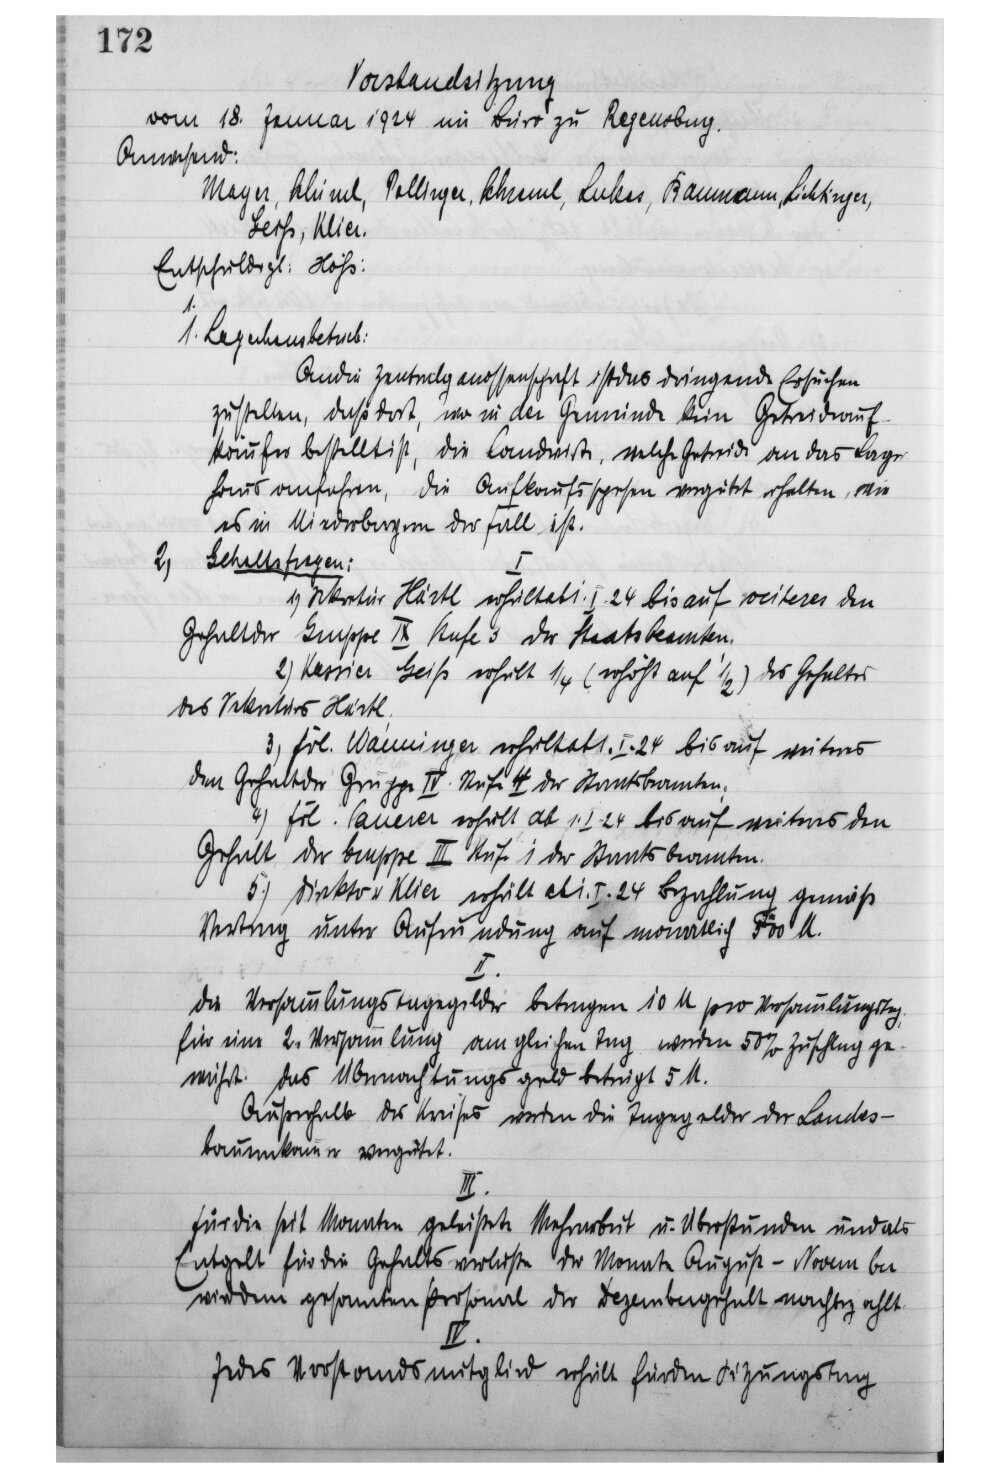 172
Vorstandsitzung
vom 18. Januar 1924 im Büro zu Regensburg.
Anwesend:
Mayer, Pollinger, Lukas, Baumann, Lichtinger,
Geiß, Klier.
Entschuldigt: Höß:
1.
1. Lagerhausbetrieb:
An die Zentralgenossenschaft ist das dringende Ersuchen
zu stellen, daß dort, wo in der Gemeinde kein Getreideauf-
käufer bestellt ist, die Landwirte, welche Getreide an das Lager
haus anfahren, die Aufkaufsspesen vergütet erhalten, wie
es in Niederbayern der Fall ist.
2, Gehaltsfragen:
I
1) Sekretär Härtl erhält ab 1. I. 24 bis auf weiteres den
Gehalt der Gruppe IX Stufe 3 der Staatsbeamten.
2) Kassier Geiß erhält 1/4 (erhöht auf 1/2) des Gehaltes
des Sekretärs Härtl.
3, Frl. Wänninger erhält ab 1. I. 24 bis auf weiteres
den Gehalt der Gruppe IV Stufe 4 der Staatsbeamten.
4) Frl. erhält ab 1. I. 24 bis auf weiteres den
Gehalt der Gruppe III Stufe 1 der Staatsbeamten.
5.) Direktor Klier erhält ab 1. I. 24 Bezahlung gemäß
Vertrag unter Aufrundung auf monatlich 500 M.
II.
Die Versam̅lungstagegelder betragen 10 M pro Versam̅lungstag,
für eine 2. Versam̅lung am gleichen Tag werden 50% Zuschlag ge-
währt. Das Übernachtungsgeld beträgt 5 M.
Außerhalb des Kreises werden die Tagegelder der Landes-
bauernkam̅er vergütet.
III.
Für die seit Monaten geleistete Mehrarbeit u. Überstunden und als
Entgelt für die Gehaltsverluste der Monate August - November
wird dem gesamten Personal der Dezembergehalt nachbezahlt.
IV.
Jedes Vorstandsmitglied erhält für den Sitzungstag